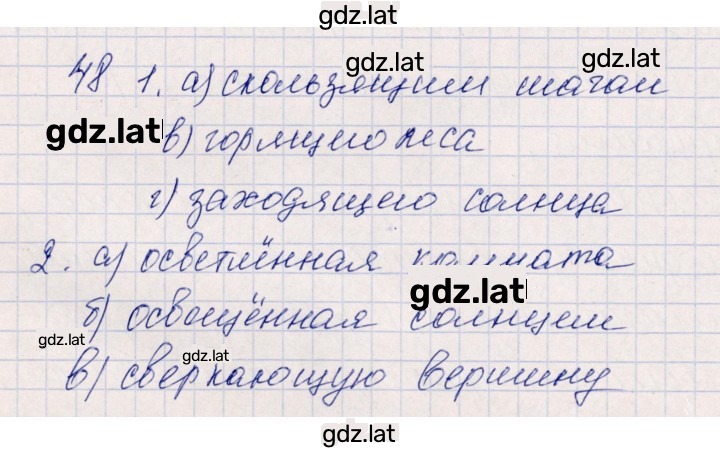 gdz.lat
48 1. а) скользящим шагом
gdz.lat
gdz.lat
gdz.lat
в) горящего леса
г) заходящего солнца
2. а) осветлённая комната
gdz.lat
б) освещённая солнцем
gdz.lat
gdz.lat
в) сверкающую вершину
gdz.lat